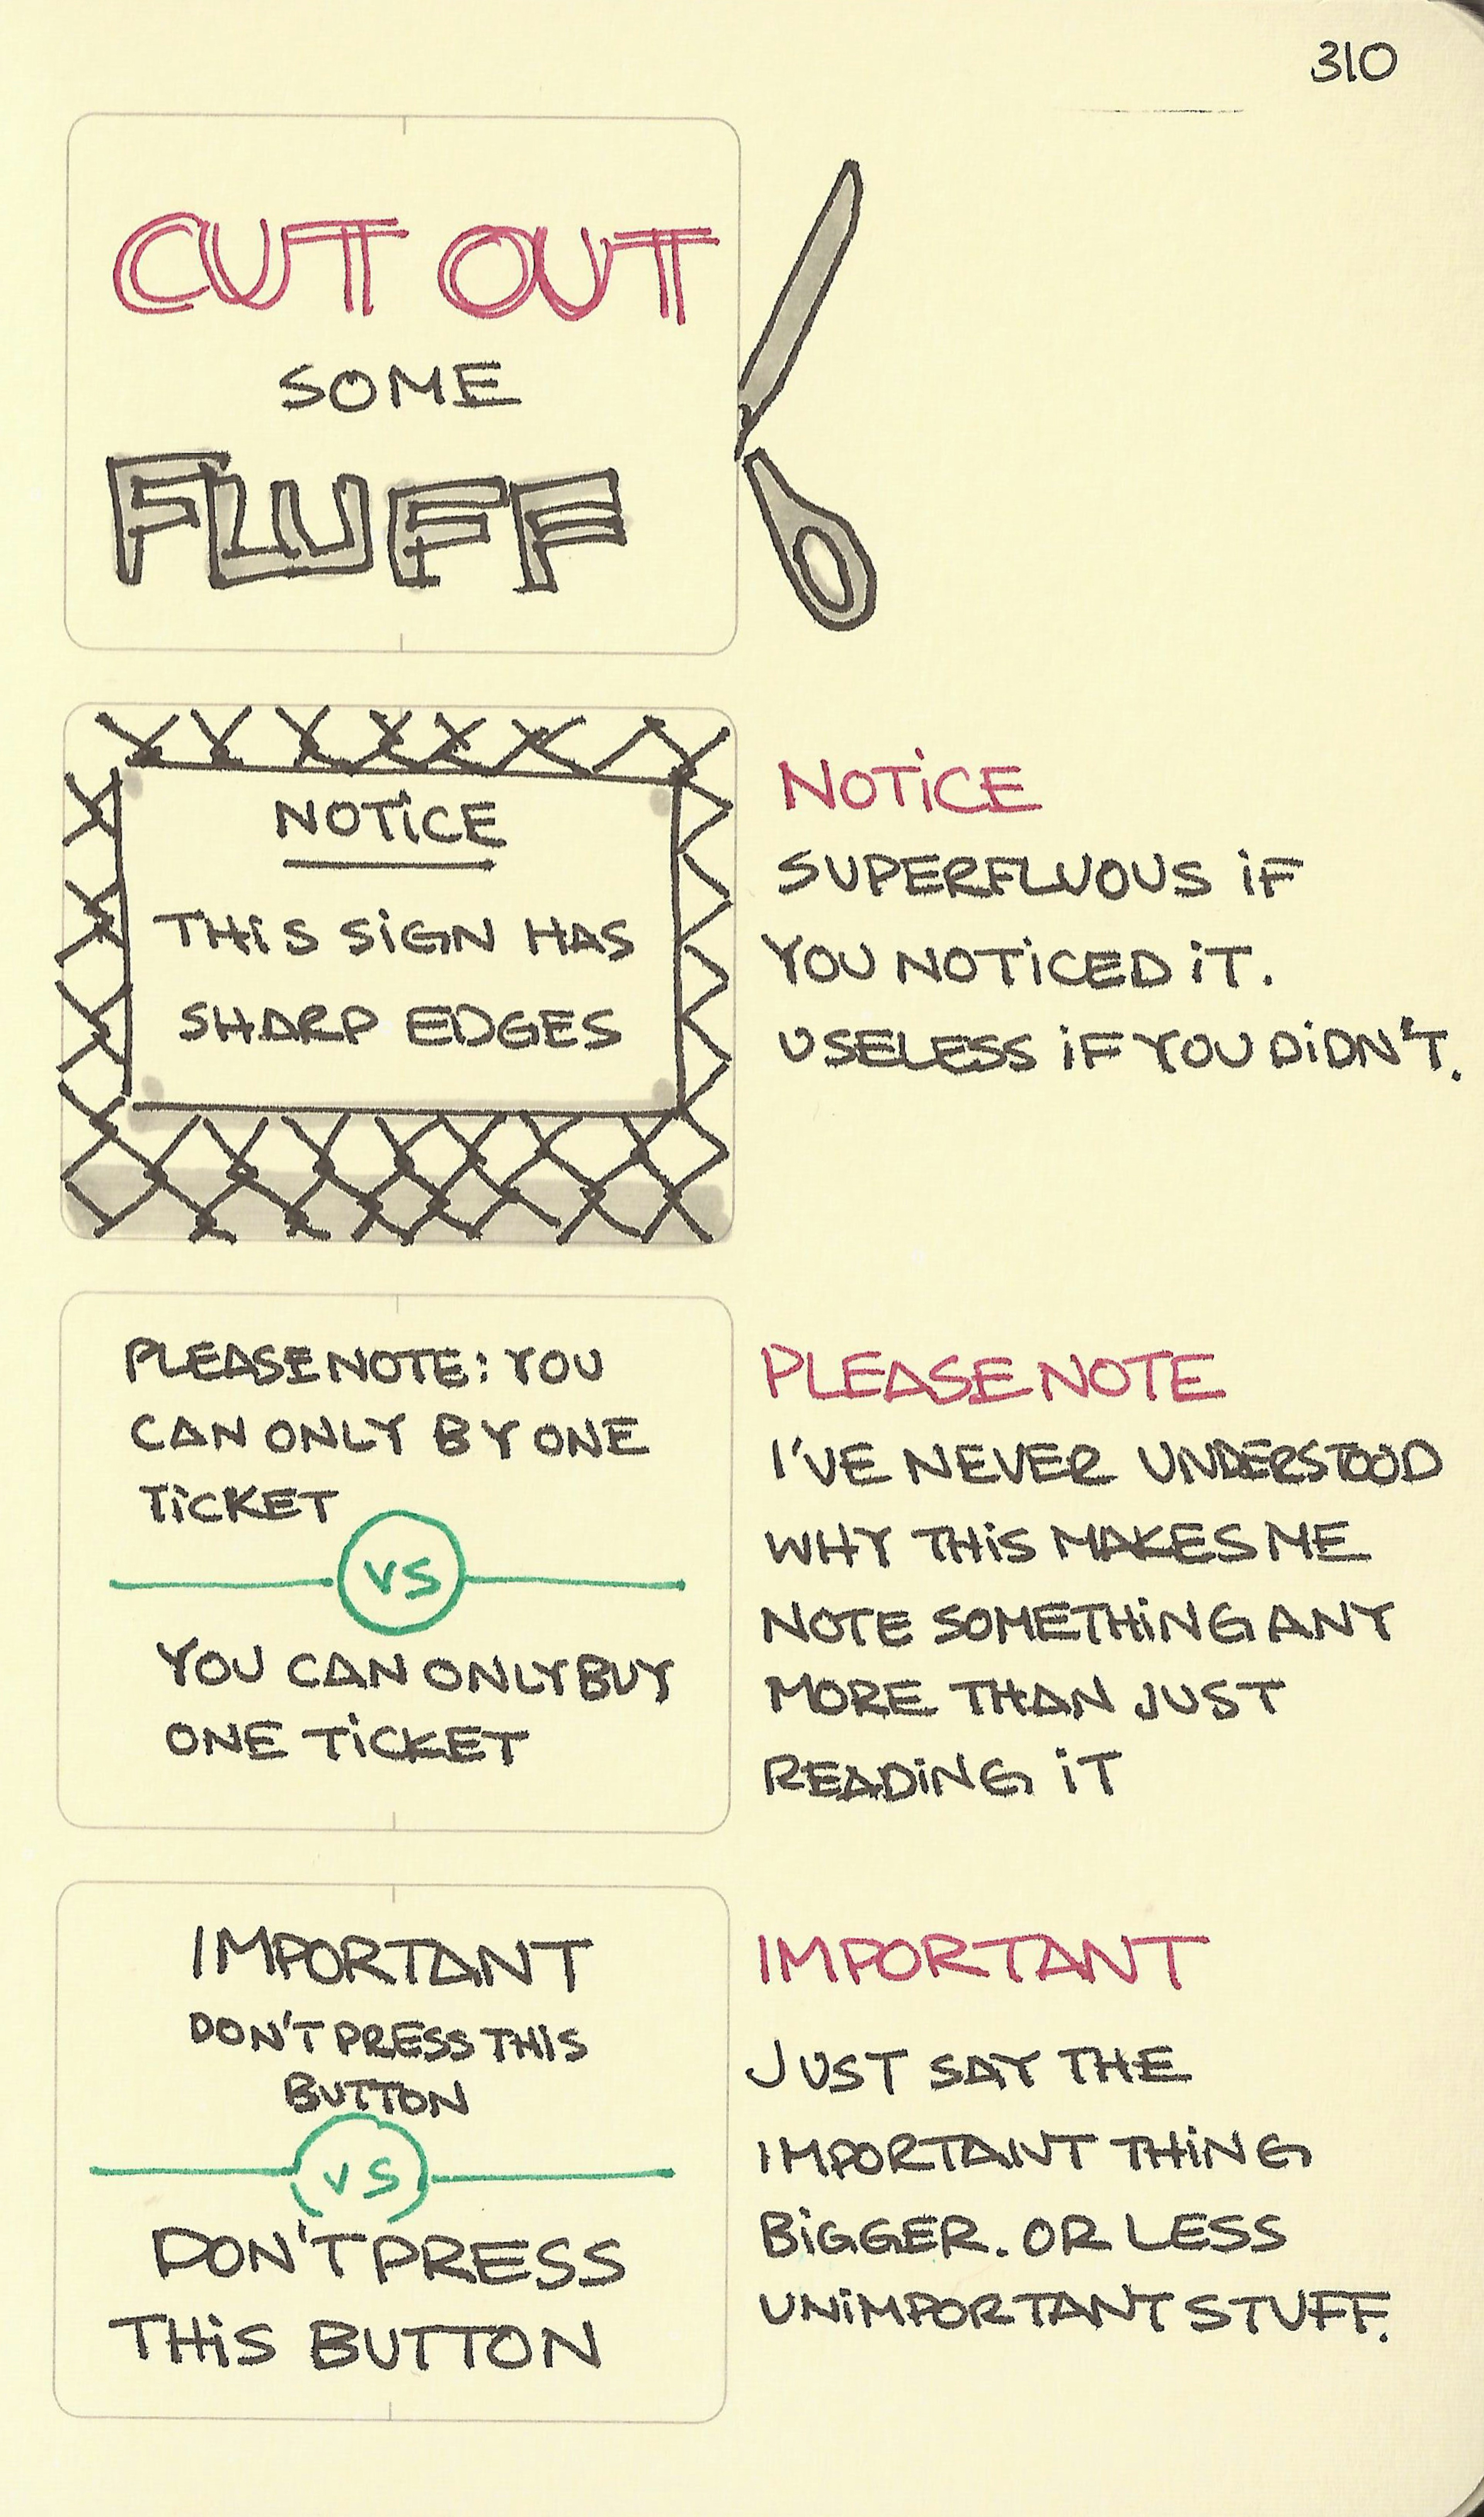 310
CUT OUT
SOME
FLUFF
NOTICE
THIS SIGN HAS
SHARP EDGES
NOTICE
SUPERFLUOUS IF
YOU NOTICED IT.
USELESS IF YOU DIDN'T.
PLEASE NOTE: YOU
CAN ONLY BY ONE
TICKET
VS
YOU CAN ONLY BUY
ONE TICKET
PLEASE NOTE
I'VE NEVER UNDERSTOOD
WHY THIS MAKES ME
NOTE SOMETHING ANY
MORE THAN JUST
READING IT
IMPORTANT
DON'T PRESS THIS
BUTTON
VS
DON'T PRESS
THIS BUTTON
IMPORTANT
JUST SAY THE
IMPORTANT THING
BIGGER. OR LESS
UNIMPORTANT STUFF.